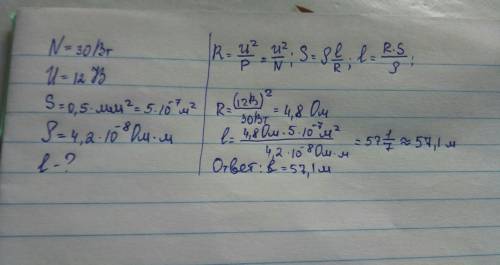 N = 30 Вт
U = 12 В
S = 0,5 мм² = 5·10⁻⁷ м²
ρ = 4,2·10⁻⁸ Ом·м
l - ?
R = U²/P = U²/N; S = ρ l/R; l = R·S/ρ;
R = (12В)²/30Вт = 4,8 Ом
l = 4,8 Ом·5·10⁻⁷ м²/4,2·10⁻⁸ Ом·м = 57 1/7 ≈ 57,1 м
Ответ: l = 57,1 м